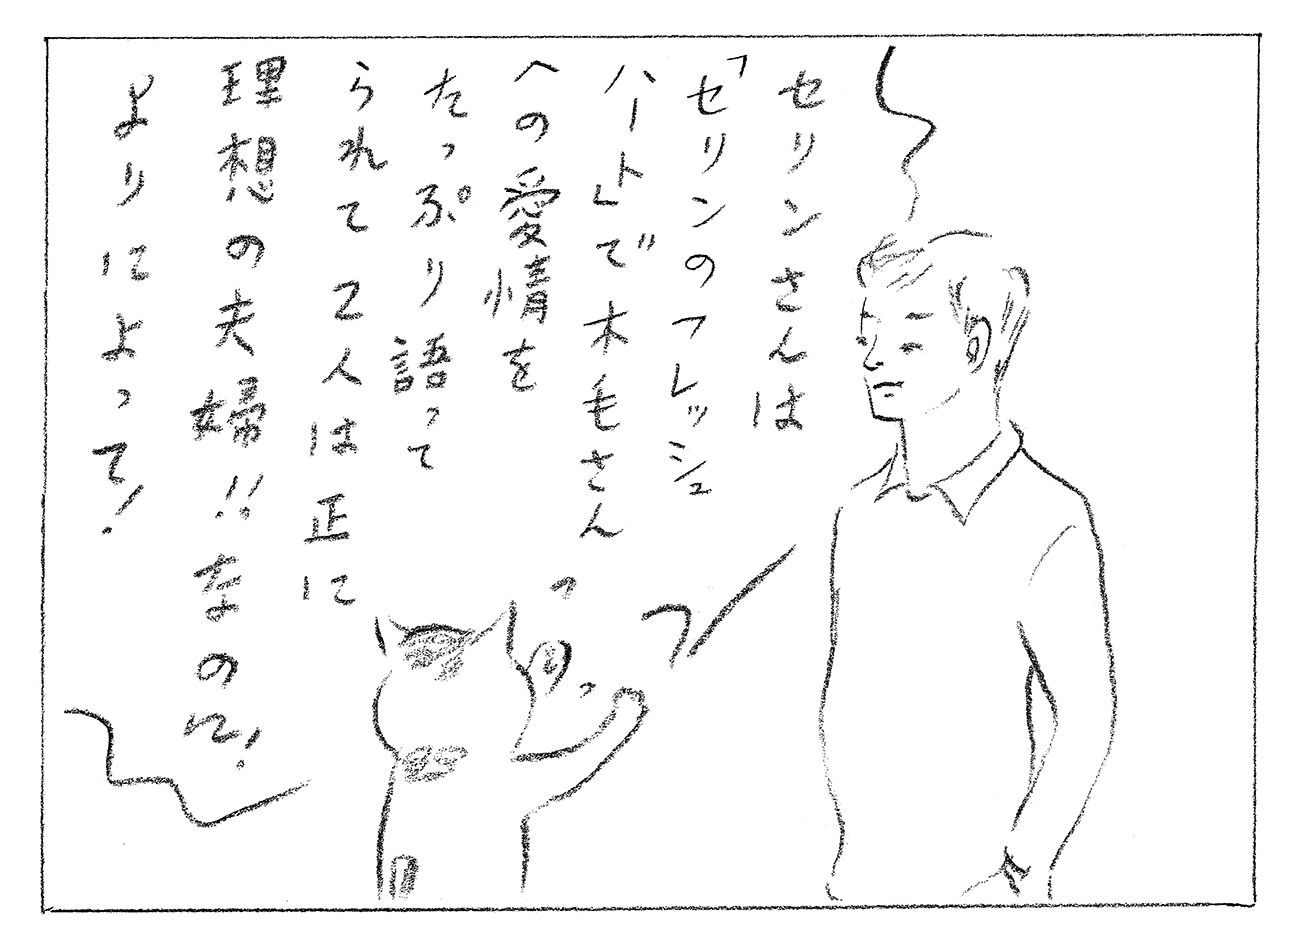 セリンさんは
「セリンのフレッシュ
ハート」で木毛さん
への愛情を
たっぷり語って
られて2人は正に
理想の夫婦!!なのに!
よりによって!
っ